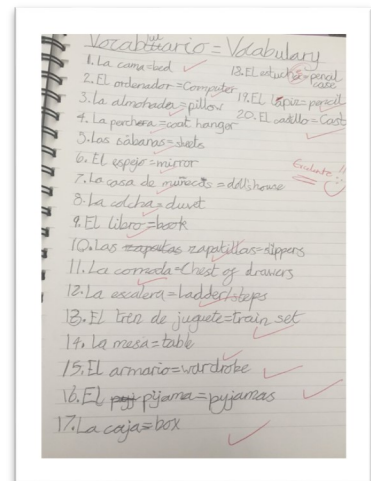 Vocabulario = Vocabulary
1. La cama = bed
2. El ordenador = Computer
3. La almohada = pillow
4. La perchera = coat hanger
5. Las sábanas = sheets
6. El espejo = mirror
7. La casa de muñecas = dolls house
8. La colcha = duvet
9. EL libro = book
10. Las zapatillas = slippers
11. La comoda = Chest of drawers
12. La escalera = Ladder/steps
13. El tren de juguete = train set
14. La mesa = table
15. EL armario = wardrobe
16. EL pijama = pyjamas
17. La caja = box
18. EL estuche = pencil case
19. EL lápiz = pencil
20. EL castillo = Castle